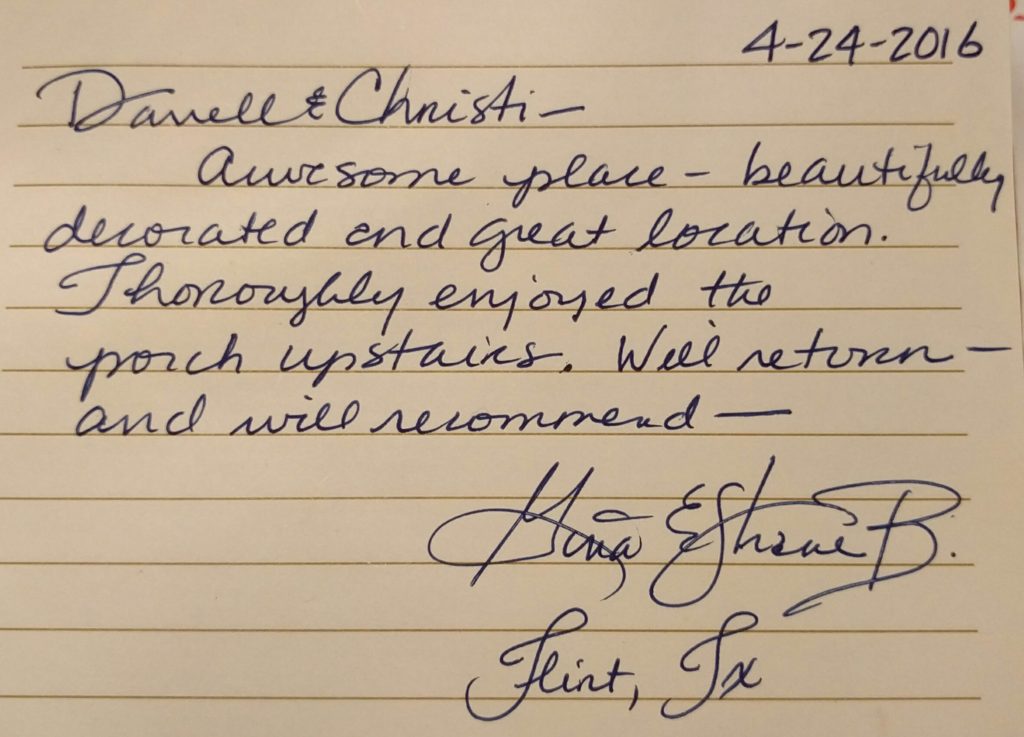 4-24-2016
Darrell & Christi –
Awesome place – beautifully
decorated and great location.
Thoroughly enjoyed the
porch upstairs. Will return –
and will recommend —
Gina & Shane B.
Flint, Tx